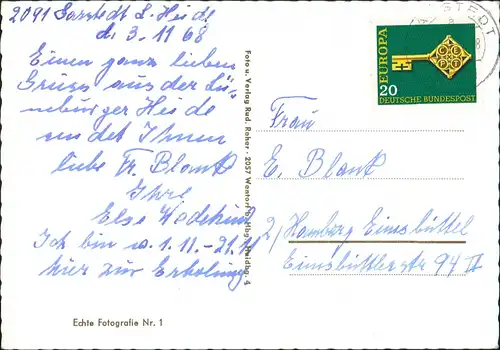 2091 Garstedt L. Heide
d. 3. 11 68
Einen ganz lieben
Gruss aus der Lü-
neburger Heide
sendet Ihnen
liebe Fr. Blank
Ihre
Else
Ich bin v. 1.11.-21.11
hier zur Erholung
Echte Fotografie Nr. 1
Foto u. Verlag Rud. Reher · 2057 Wentorf
4
EUROPA
20
DEUTSCHE BUNDESPOST
STEDT
Frau
E. Blank
2/ Hamburg Eimsbüttel
Eimsbüttlerstr 94 II